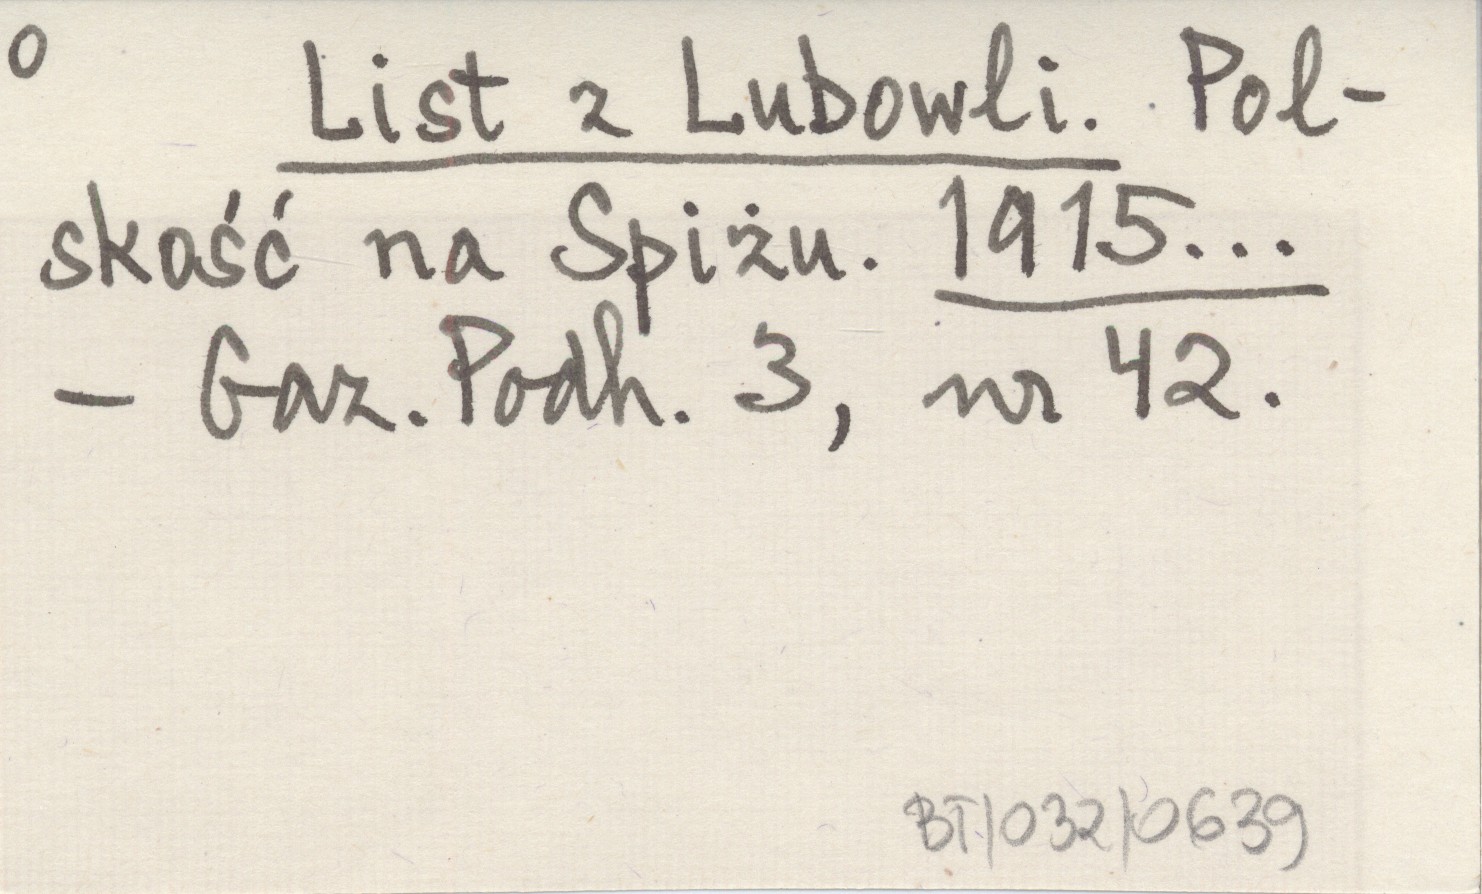 o
List z Lubowli. Pol-
skość na Spiżu. 1915...
- Gaz. Podh. 3, nr 42.
BT/032/0639